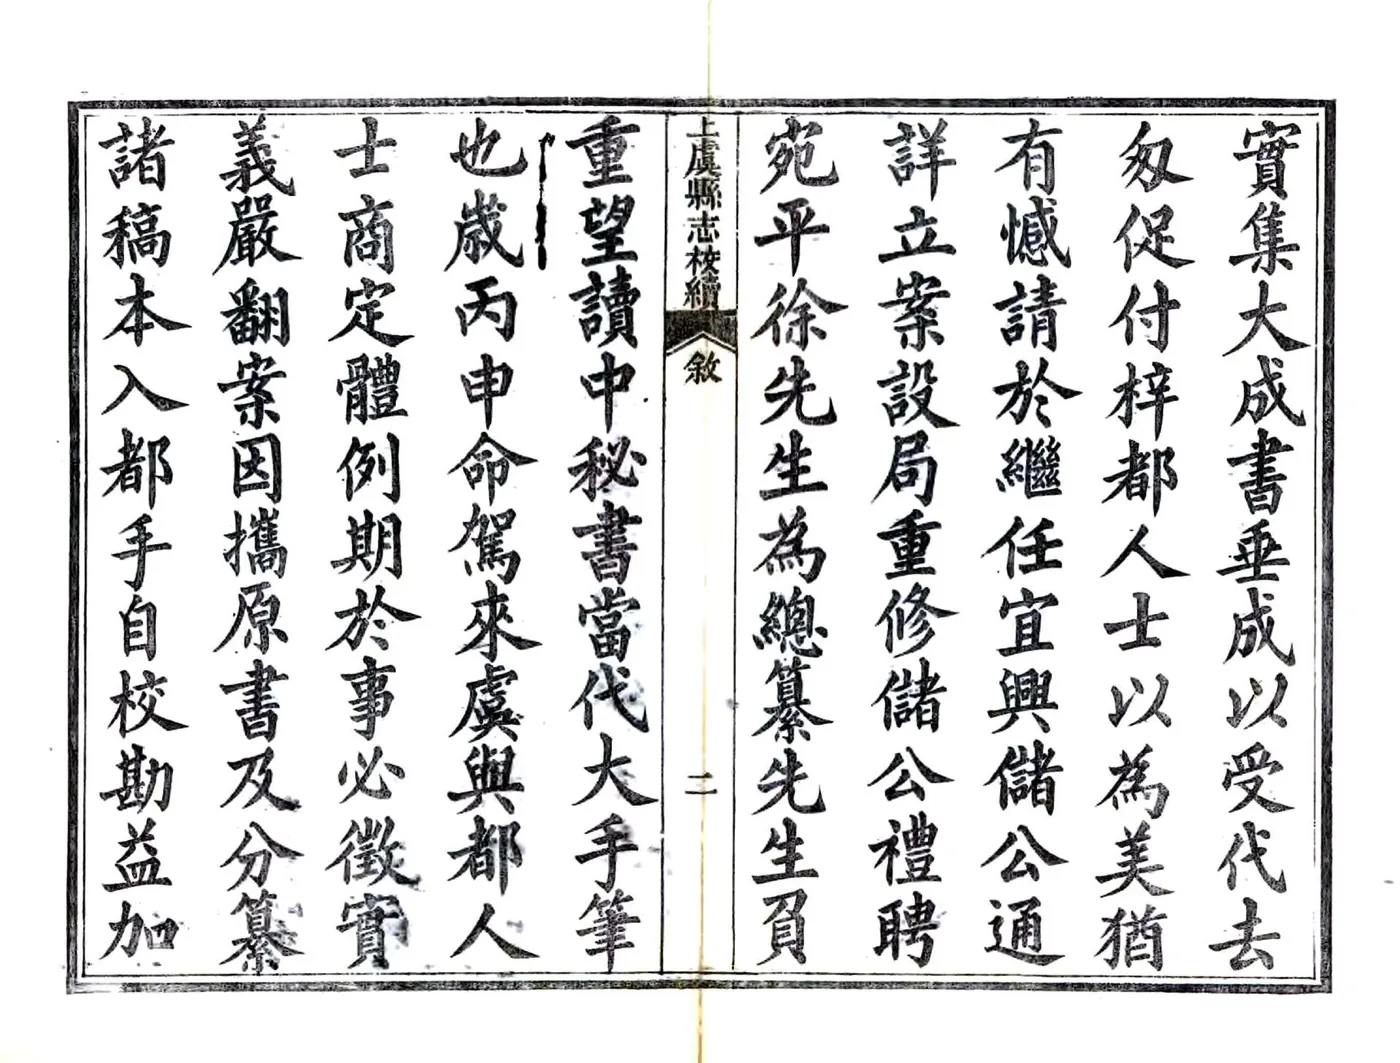 實集大成書垂成以受代去
匆促付梓都人士以為美猶
有憾請於繼任宜興儲公通
詳立案設局重修儲公禮聘
宛平徐先生為總纂先生負
上虞縣志校續
敘
二
重望讀中秘書當代大手筆
也歲丙申命駕來虞與都人
士商定體例期於事必徵實
義嚴翻案因攜原書及分纂
諸稿本入都手自校勘益加